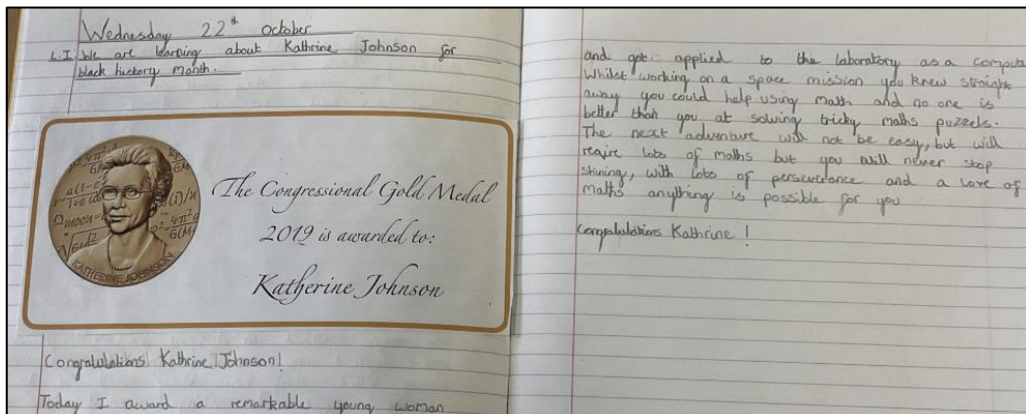 Wednesday 22th October
L.I: We are learning about Kathrine Johnson for
black history month.
The Congressional Gold Medal
2019 is awarded to:
Katherine Johnson
KATHERINE JOHNSON
Congratulations Kathrine Johnson!
Today I award a remarkable young woman
and got applied to the laboratory as a compute
Whilst working on a space mission you knew straight
away you could help using math and no one is
better than you at solving tricky maths puzzels.
The next adventure will not be easy, but will
reqire lots of maths but you will never stop
shining, with lots of perseverance and a love of
maths anything is possible for you
Congratulations Kathrine!